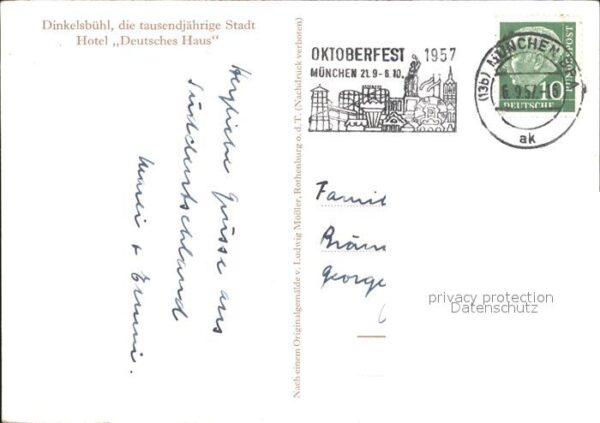 Dinkelsbühl, die tausendjährige Stadt
Hotel „Deutsches Haus“
Herzliche Grüsse aus
Süddeutschland
Nach einem Originalgemälde v. Ludwig Moßler, Rothenburg o. d. T. (Nachdruck verboten)
OKTOBERFEST 1957
MÜNCHEN 21.9-6.10.
(13b) MÜNCHEN
.9.57
ak
10
DEUTSCHE
BUNDESPOST
Famil
Bräun
George
privacy protection
Datenschutz